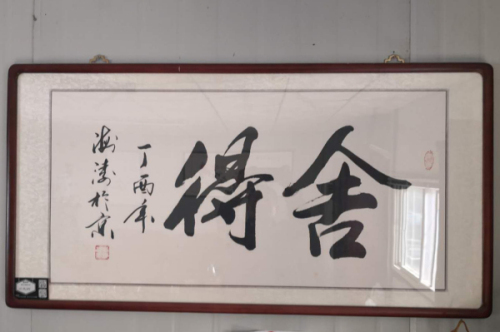 舍得
丁酉年
海涛於京